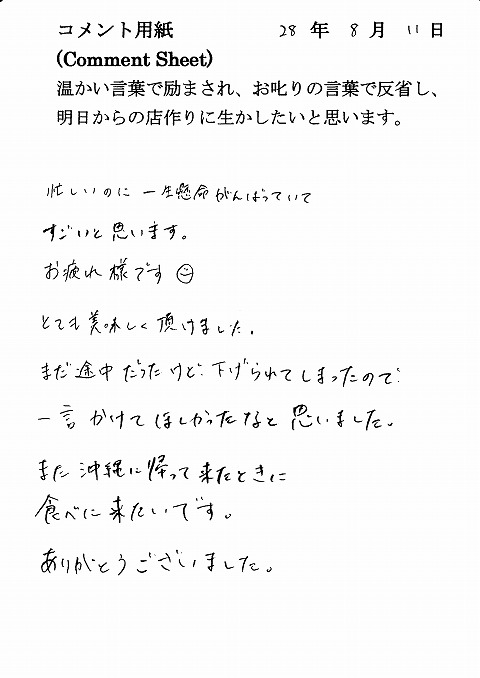 コメント用紙 28 年 8 月 11 日
(Comment Sheet)
温かい言葉で励まされ、お叱りの言葉で反省し、
明日からの店作りに生かしたいと思います。
忙しいのに 一生懸命がんばっていて
すごいと思います。
お疲れ様です
とても美味しく頂けました。
まだ途中だったけど、下げられてしまったので
一言かけてほしかったなと思いました。
また沖縄に帰って来たときに
食べに来たいです。
ありがとうございました。